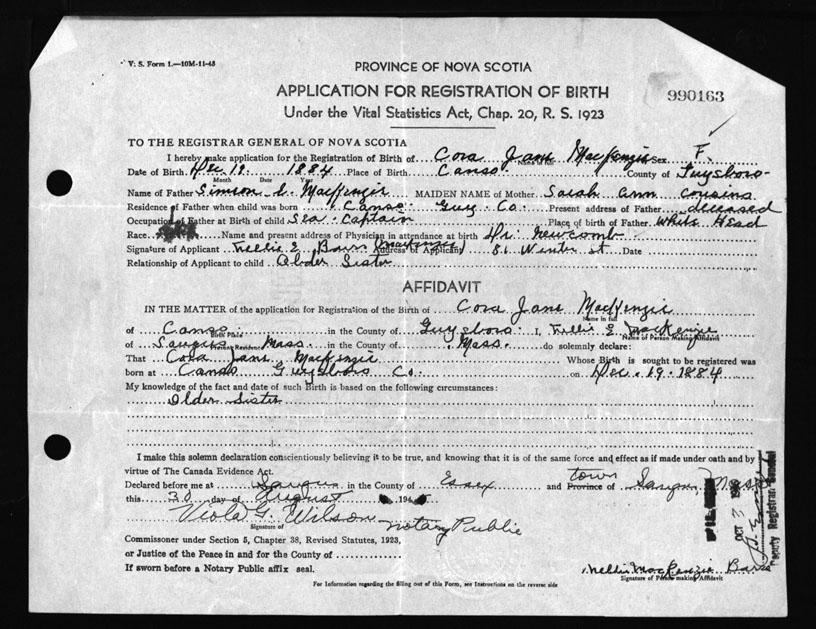 V. S. Form 1.—10M-11-48
PROVINCE OF NOVA SCOTIA
APPLICATION FOR REGISTRATION OF BIRTH
990163
Under the Vital Statistics Act, Chap. 20, R. S. 1923
TO THE REGISTRAR GENERAL OF NOVA SCOTIA
I hereby make application for the Registration of Birth of Cora Jane MacKenzie Sex F.
Name in full
Date of Birth Dec 19. 1884 Place of Birth Canso County of Guysboro
Month Date Year
Name of Father Simson MacKenzie MAIDEN NAME of Mother Sarah Ann Cousins
Residence of Father when child was born Canso Guy Co. Present address of Father deceased
Occupation of Father at Birth of child Sea Captain Place of birth of Father White Head
Race Name and present address of Physician in attendance at birth Dr. Newcomb
Signature of Applicant Nellie E Barr (MacKenzie) Address of Applicant 81 Winter St Date
Relationship of Applicant to child Older Sister
AFFIDAVIT
IN THE MATTER of the application for Registration of the Birth of Cora Jane MacKenzie
Name in full
of Canso in the County of Guysboro I, Nellie E MacKenzie
Birth Place Name of Person Making Affidavit
of Saugus Mass. in the County of Mass. do solemnly declare:
Present Residence
That Cora Jane MacKenzie Whose Birth is sought to be registered was
born at Canso Guysboro Co. on Dec. 19. 1884
My knowledge of the fact and date of such Birth is based on the following circumstances:
Older Sister
I make this solemn declaration conscientiously believing it to be true, and knowing that it is of the same force and effect as if made under oath and by
virtue of The Canada Evidence Act.
Declared before me at Saugus in the County of Essex and Province of town Saugus, Mass
this 30 day of August 194
Viola G. Wilson Notary Public
Signature of
Commissioner under Section 5, Chapter 38, Revised Statutes, 1923,
or Justice of the Peace in and for the County of
If sworn before a Notary Public affix seal.
Nellie MacKenzie Barr
Signature of Person making Affidavit
OCT 3
Deputy Registrar General
For Information regarding the filling out of this Form, see Instructions on the reverse side